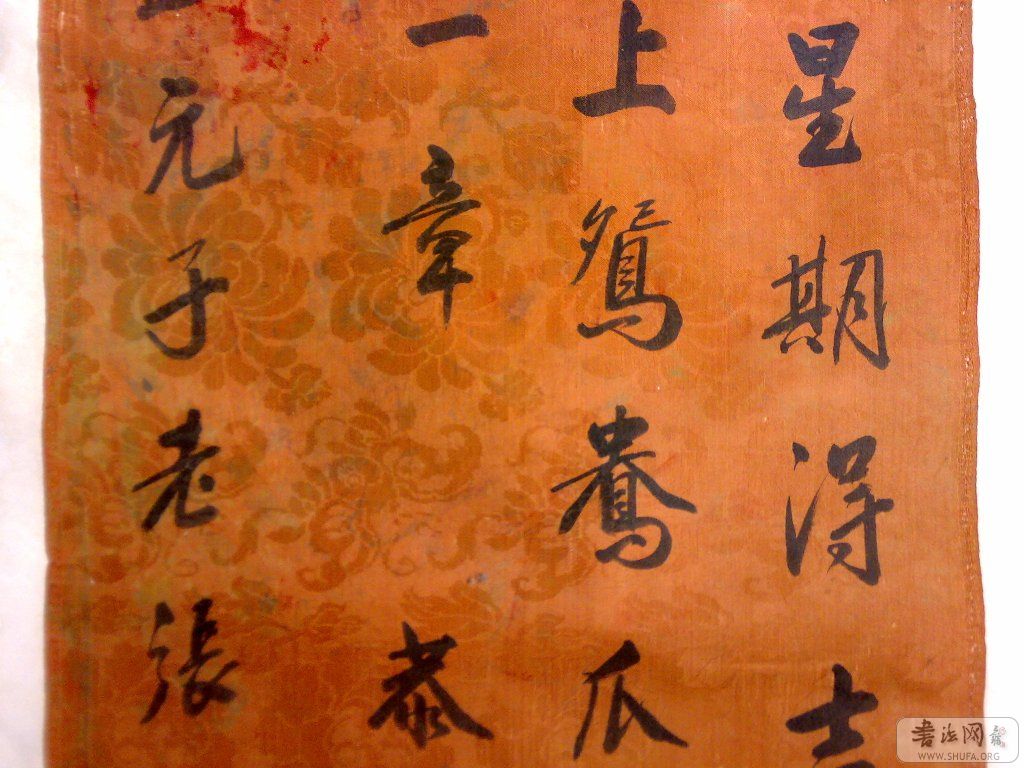 星期得
上鴛鴦瓜
一章恭
元子老張
书法网
WWW.SHUFA.ORG